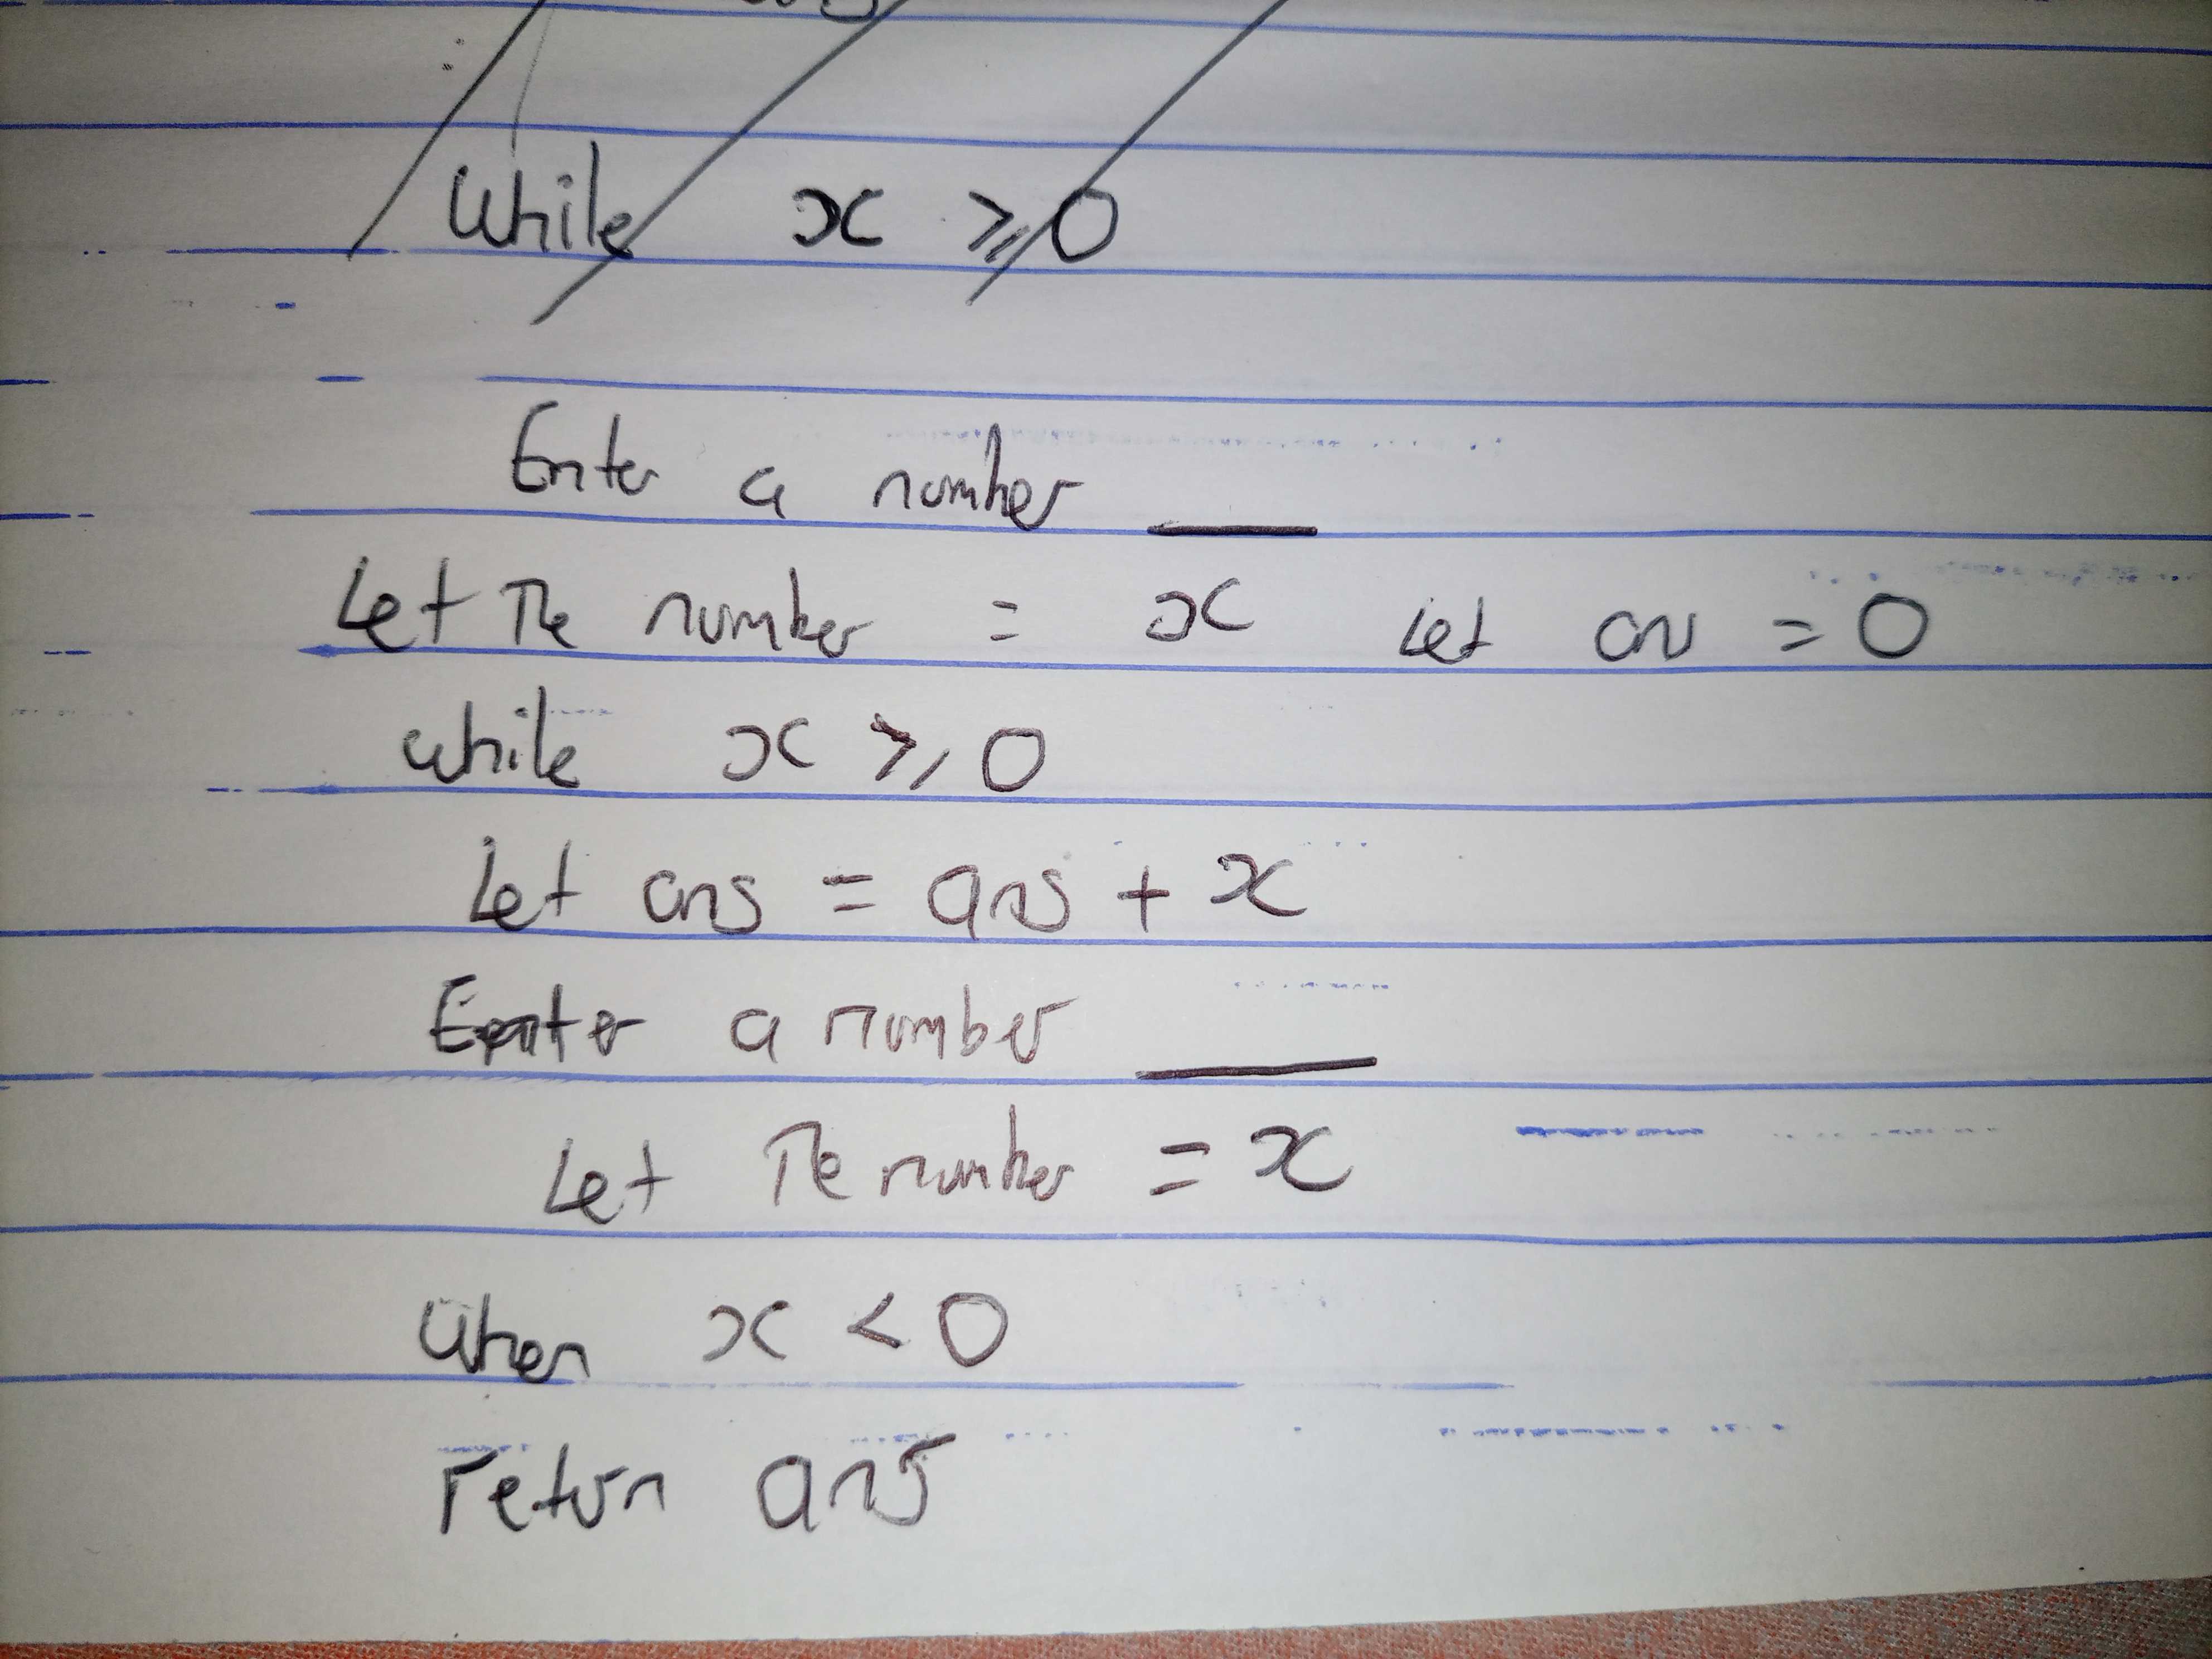 While x ≥ 0
Enter a number ___
Let The number = x Let ans = 0
while x ≥ 0
Let ans = ans + x
Enter a number ___
Let The number = x
When x < 0
return ans